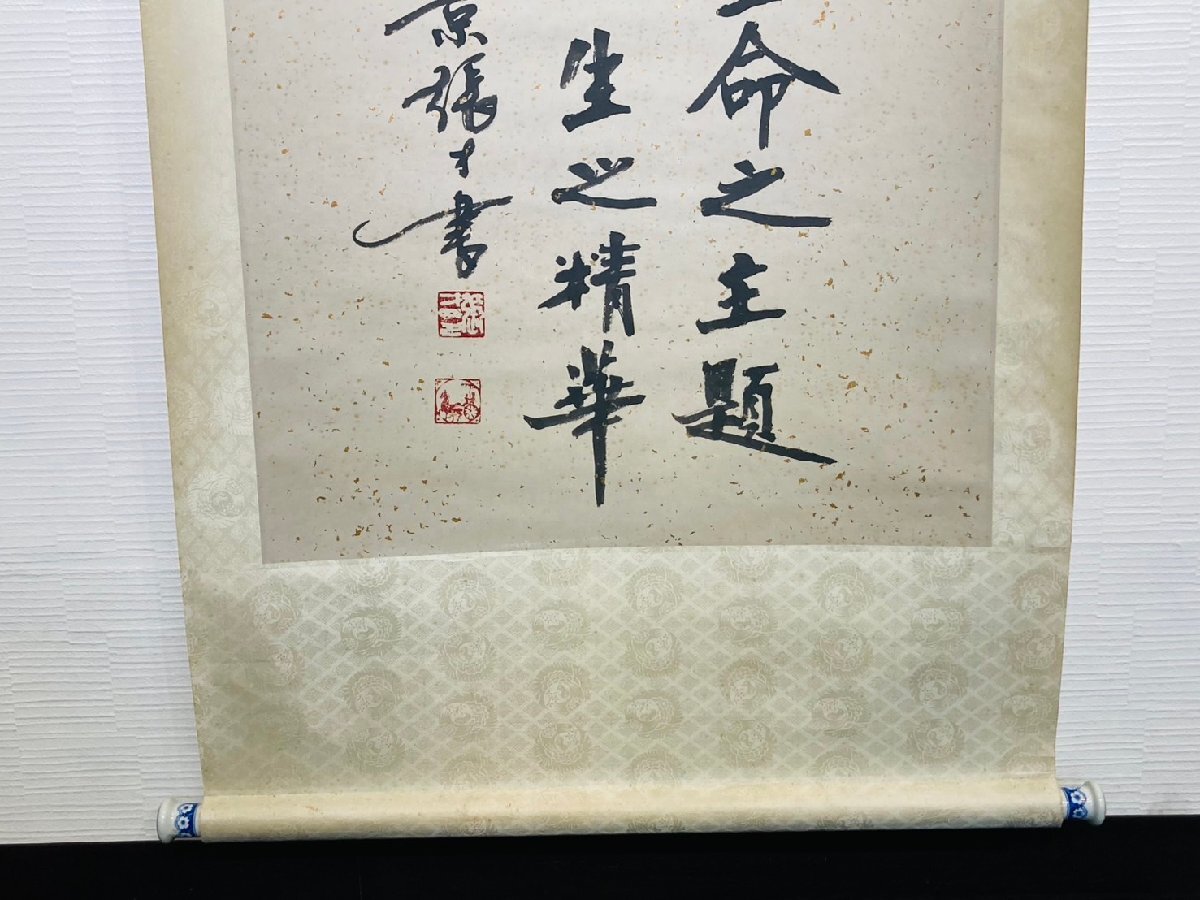 命之主題
生之精華
京張才書